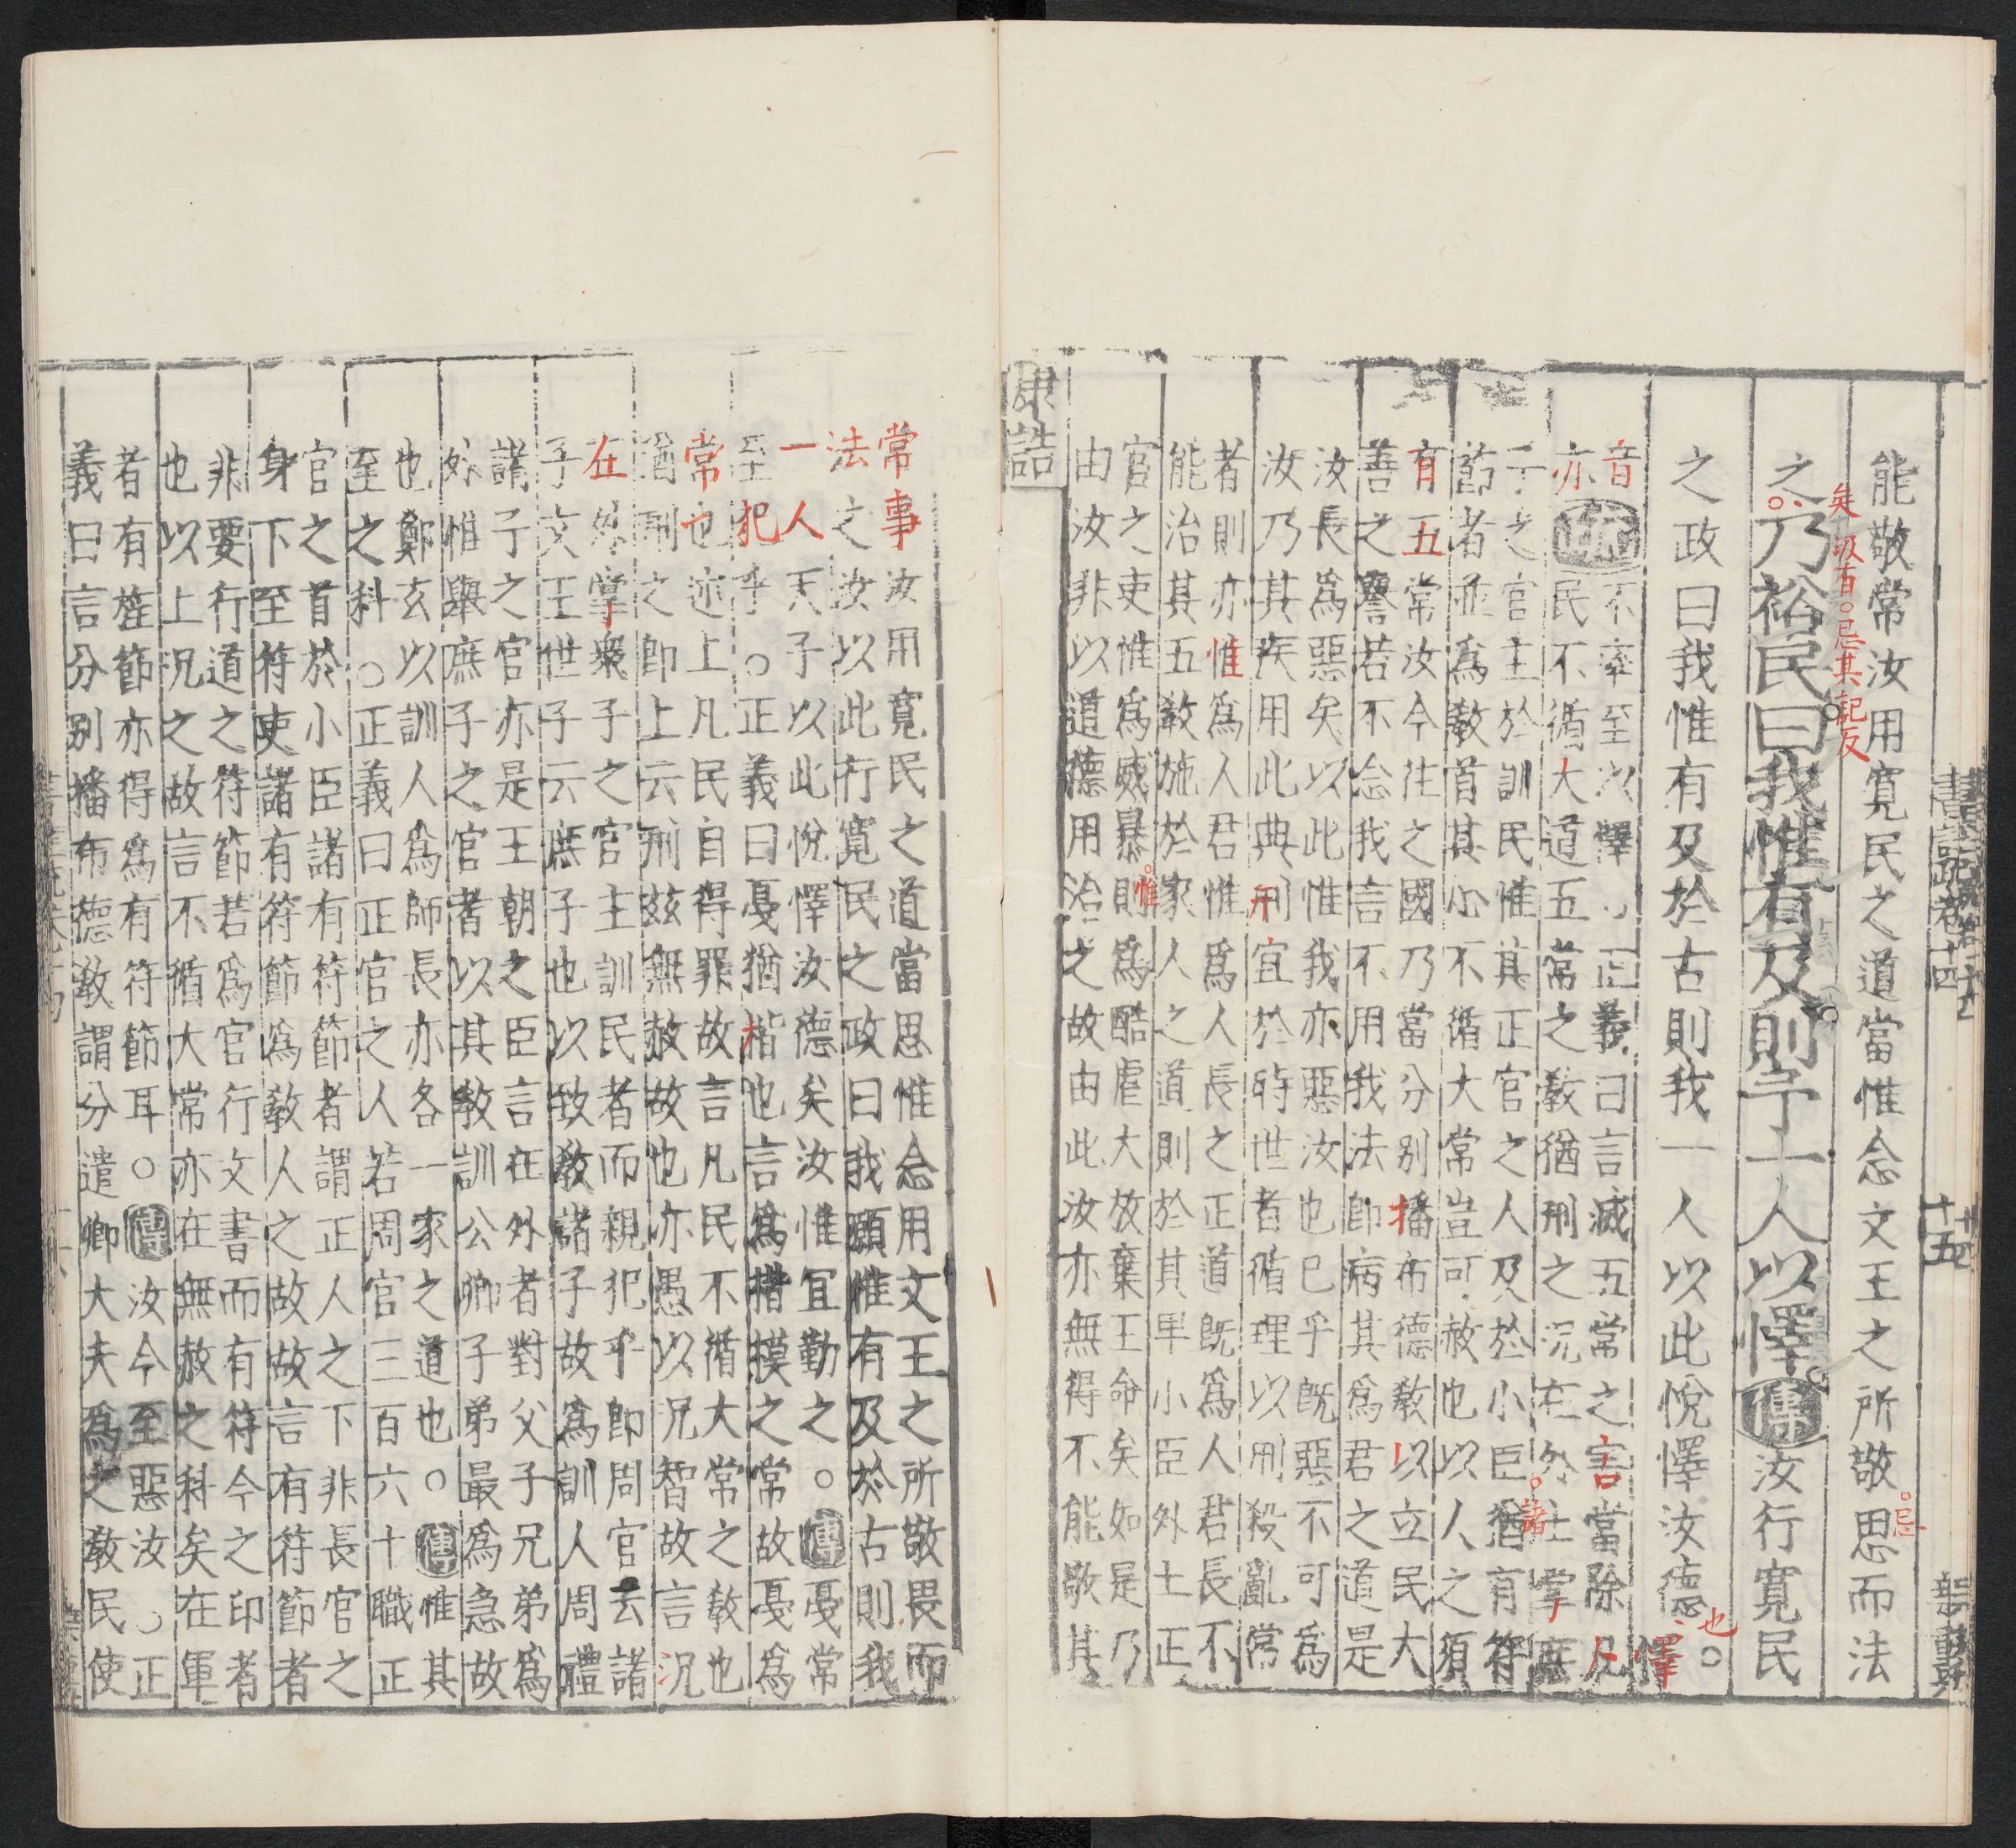 能敬常汝用寬民之道當惟念文王之所敬思而法
之乃裕民曰我惟有及則予一人以懌傳汝行寬民
之政曰我惟有及於古則我一人以此悅懌汝德也。懌
音不率至以懌正義曰言滅五常之害當除凡
亦疏民不循大道五常之教猶刑之況在外土掌庶
子之官主於訓民惟其正官之人及於小臣猶諸有符
節者並為教首其心不循大常豈可赦也以人之須
有五常汝今往之國乃當分別播布德教以立民大
善之譽若不念我言不用我法即病其為君之道是
汝長為惡矣以此惟我亦惡汝也已乎既惡不可為
汝乃其疾用此典刑宜於時世者循理以刑殺亂常
者則亦惟為人君惟為人長之正道既為人君長不
能治其五教施於家人之道則於其卑小臣外土正
官之吏惟為威暴則惟為酷虐大放棄王命矣如是乃
由汝非以道德用治之故由此汝亦無得不能敬其
康誥
常事汝用寬民之道當思惟念用文王之所敬畏而
法之汝以此行寬民之政曰我願惟有及於古則我
一人天子以此悅懌汝德矣汝惟宜勤之。傳戞常
至犯乎。正義曰戞猶楷也言為楷模之常故戞為
常也述上凡民自得罪故言凡民不循大常之教也
猶刑之即上云刑玆無赦故也亦愚以況智故言況
在外掌衆子之官主訓民者而親犯乎即周官云諸
子文王世子云庶子也以致教諸子故為訓人周禮
諸子之官亦是王朝之臣言在外者對父子兄弟為
外惟舉庶子之官者以其教訓公卿子弟最為急故
也鄭玄以訓人為師長亦各一家之道也。傳惟其
至之科。正義曰正官之人若周官三百六十職正
官之首於小臣諸有符節者謂正人之下非長官之
身下至符吏諸有符節為教人之故故言有符節者
非要行道之符節若為官行文書而有符今之印者
也以上況之故言不循大常亦在無赦之科矣在軍
者有旌節亦得為有符節耳。傳汝今至惡汝。正
義曰言分別播布德教謂分遣卿大夫為之教民使
矣圾百。忌其記反
。忌
書註疏卷十四
十五